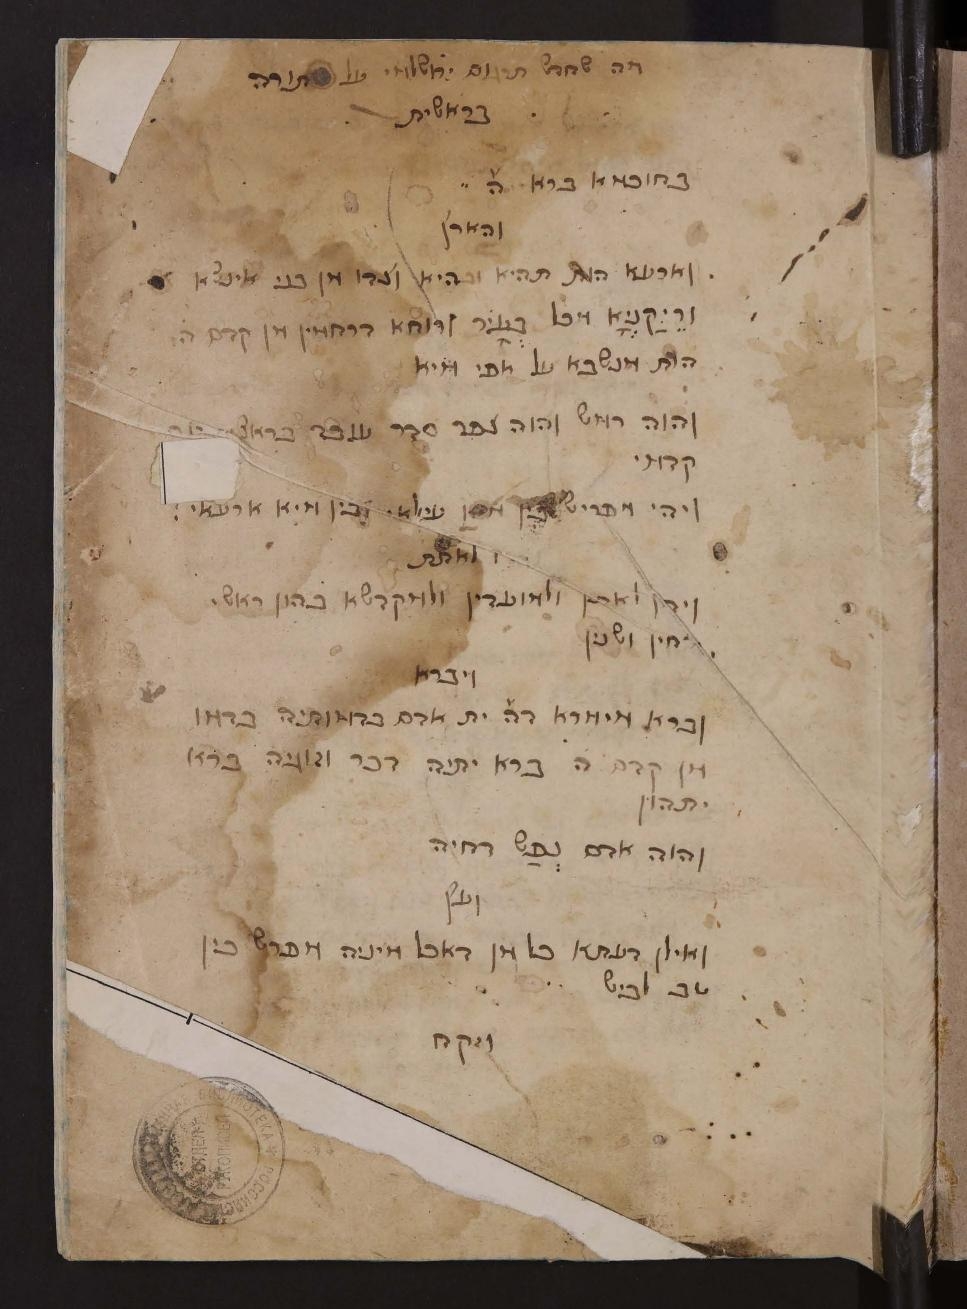 זה שחדש תרגום ירושלמי על תורה
בראשית
בחוכמא ברא ה'
והארץ
וארעא הות תהיא ובהיא וצדו מן בני אינשא
וריקניא מכל בעיר ורוחא דרחמין מן קדם ה'
הות מנשבא על אפי מיא
והוה רמש והוה צפר סדר עובד בראשית יום
קדמי
ויהי מפריש בין מיין עילאי ובין מיא ארעאי
ולאתת
ויהון לאתין ולמועדין ולמקדשא בהון ראשי
ירחין ושנין
ויברא
וברא מימרא דה' ית אדם בדמותיה בדמו
מן קדם ה ברא יתיה דכר וזוגיה ברא
יתהון
והוה אדם נפש דחיה
ועץ
ואילן דעתא כל מן דאכל מיניה מפרש בין
טב לביש
ויקח
БИБЛИОТЕКА
ОТДЕЛ
РУКОПИСЕЙ